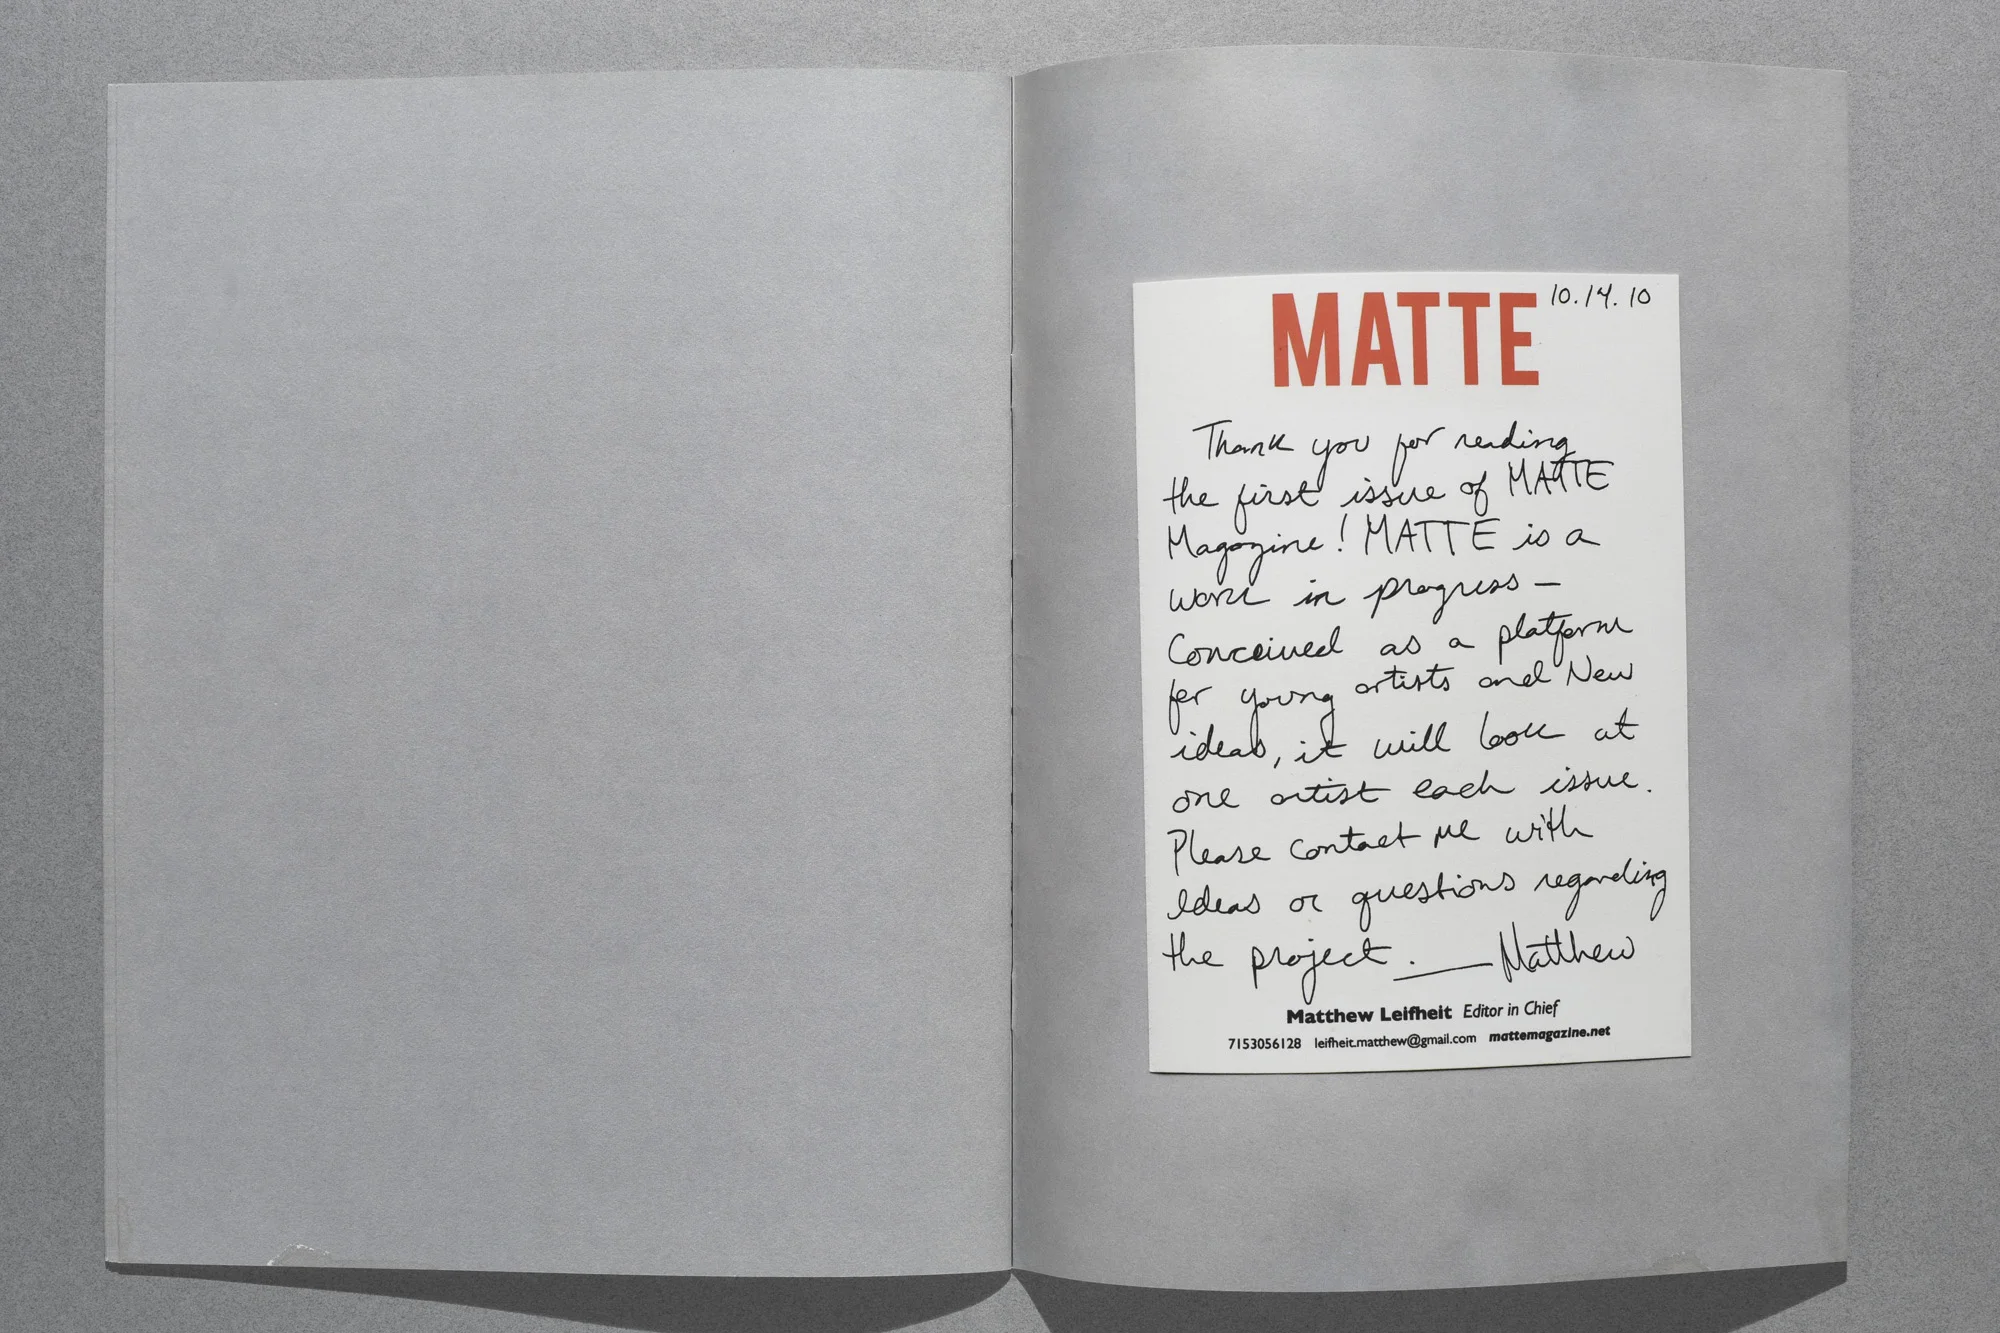 MATTE 10.14.10
Thank you for reading
the first issue of MATTE
Magazine! MATTE is a
work in progress —
Conceived as a platform
for young artists and New
ideas, it will look at
one artist each issue.
Please contact me with
Ideas or questions regarding
the project. — Matthew
Matthew Leifheit Editor in Chief
7153056128 leifheit.matthew@gmail.com mattemagazine.net